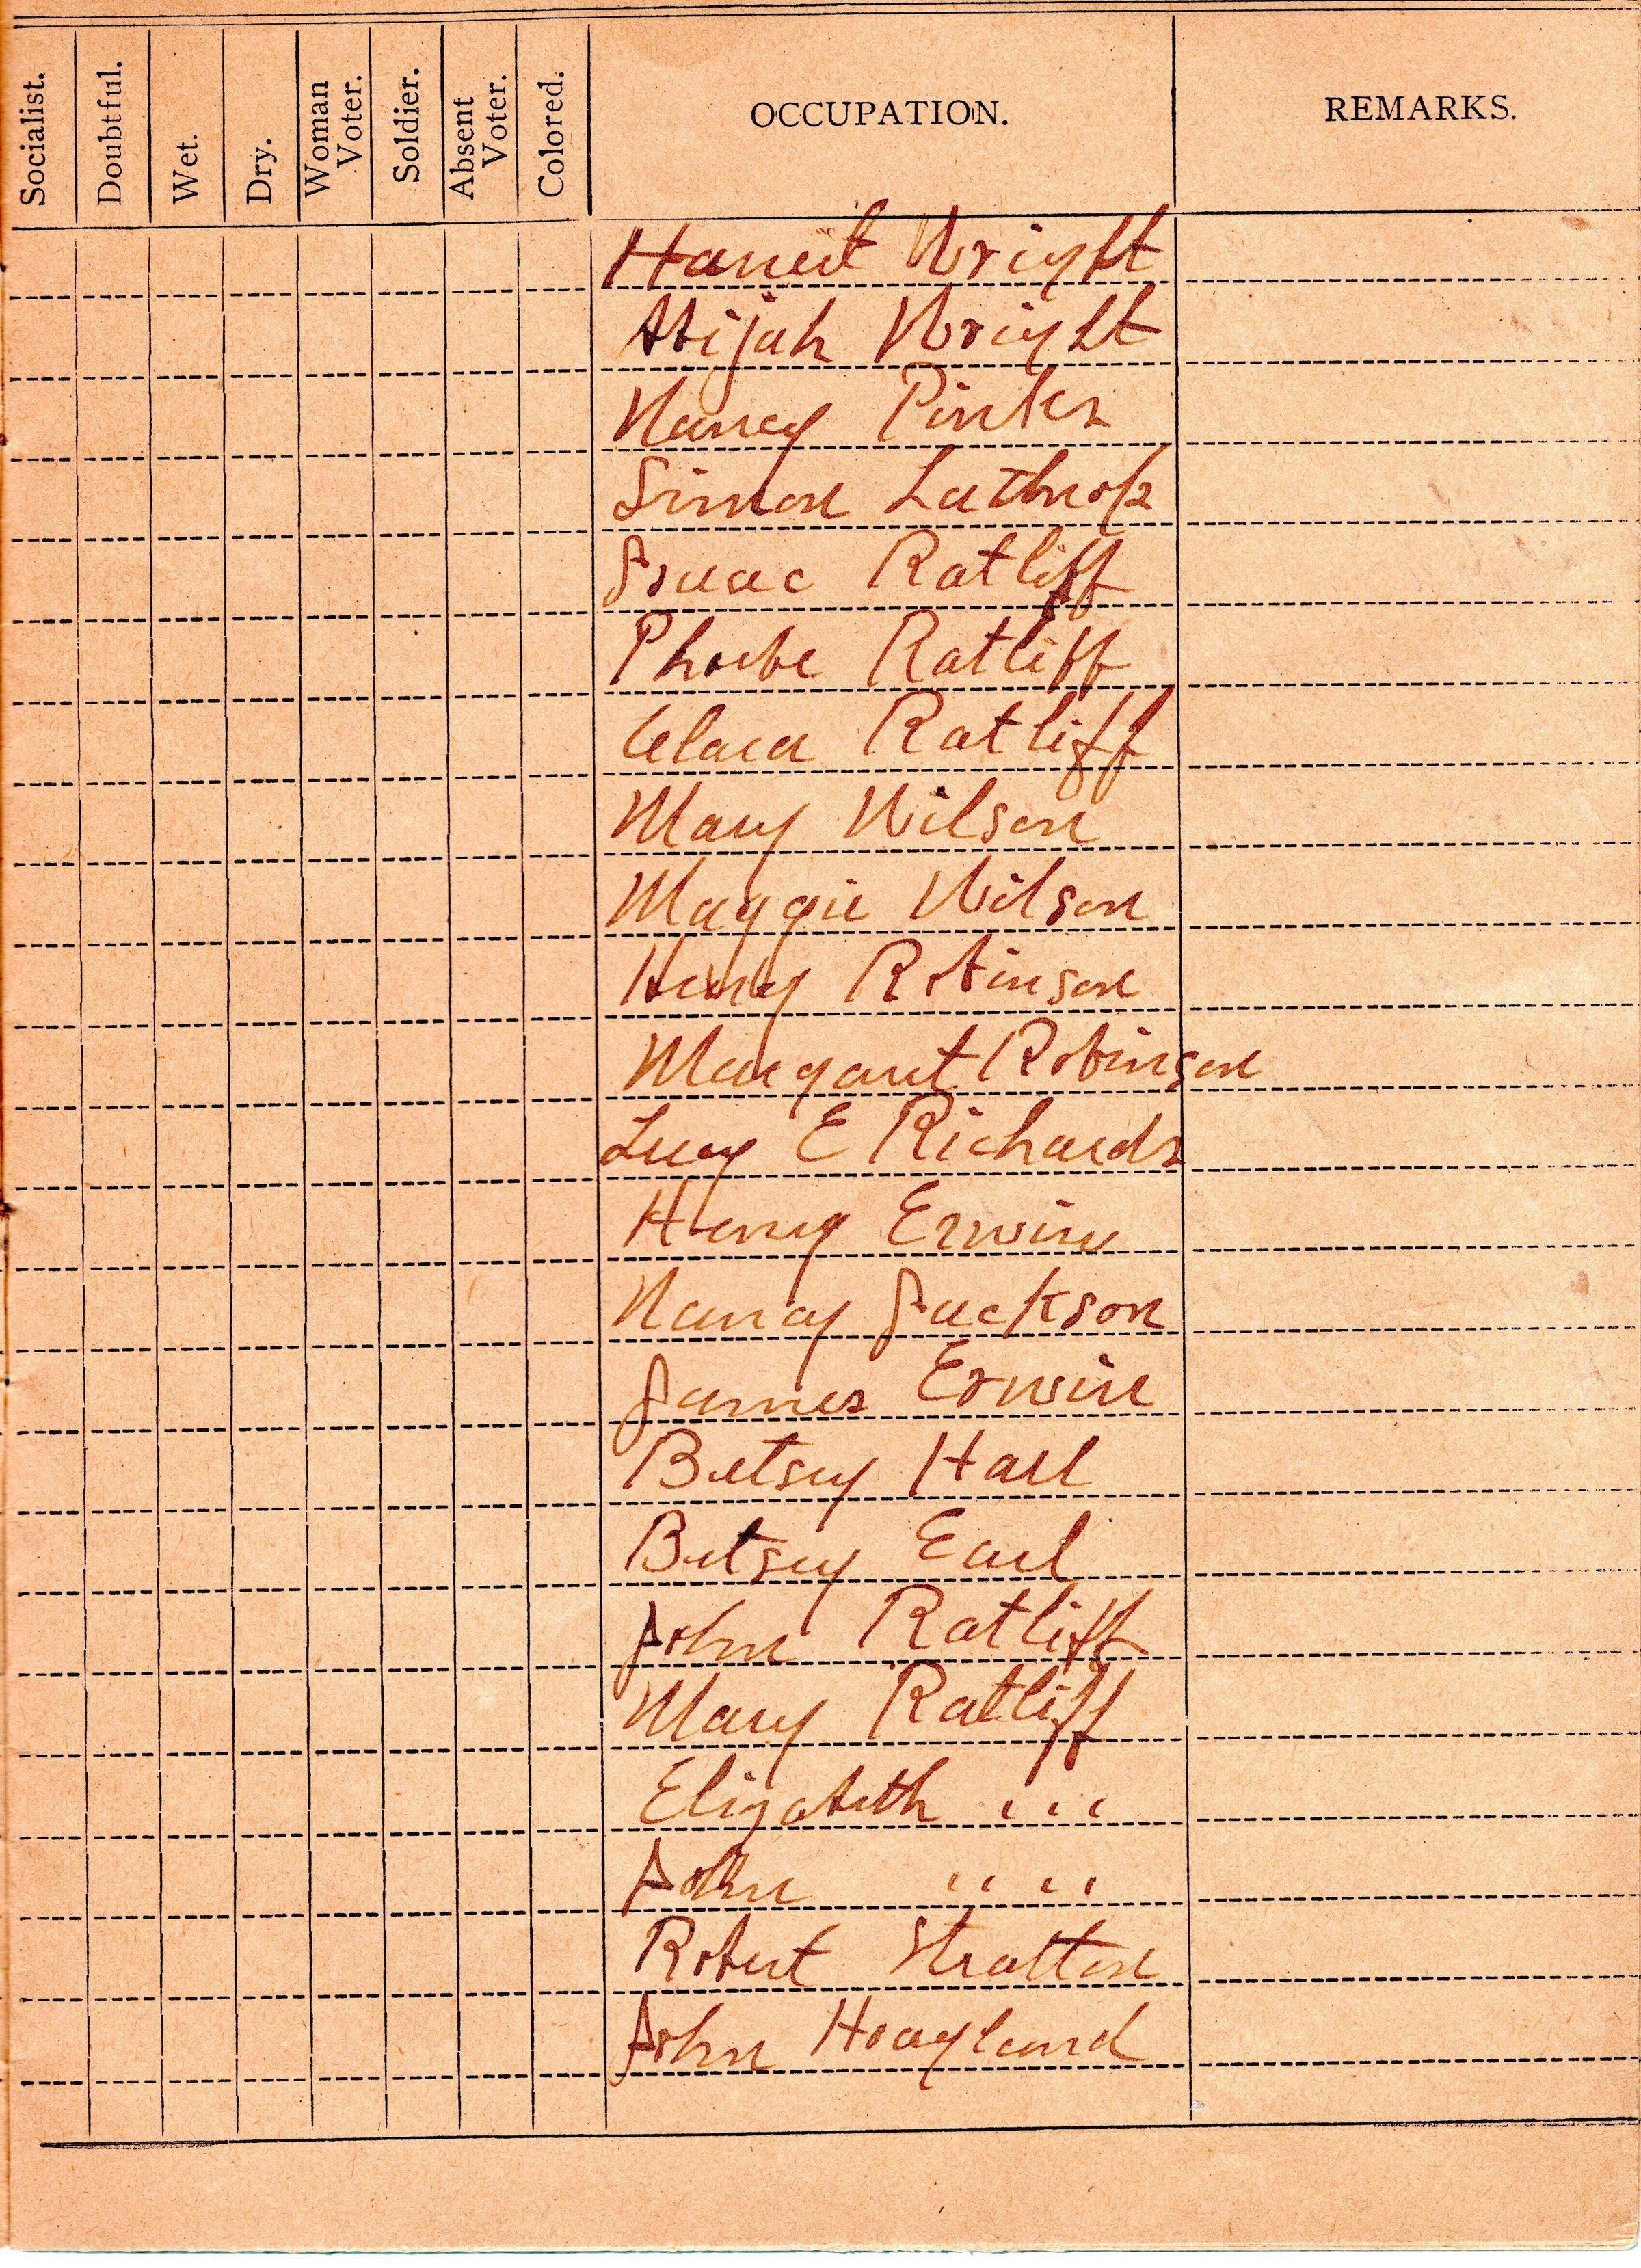 Socialist.
Doubtful.
Wet.
Dry.
Woman Voter.
Soldier.
Absent Voter.
Colored.
OCCUPATION.
REMARKS.
Harriet Wright
Abijah Wright
Nancy
Simon Lathrop
Isaac Ratliff
Phoebe Ratliff
Clara Ratliff
Mary Wilson
Maggie Wilson
Henry Robinson
Margaret Robinson
Lucy E Richards
Henry Erwin
Nancy Jackson
James Erwin
Betsey Hall
Betsey Earl
John Ratliff
Mary Ratliff
Elizabeth " "
John " "
Robert Stratton
John Hoagland